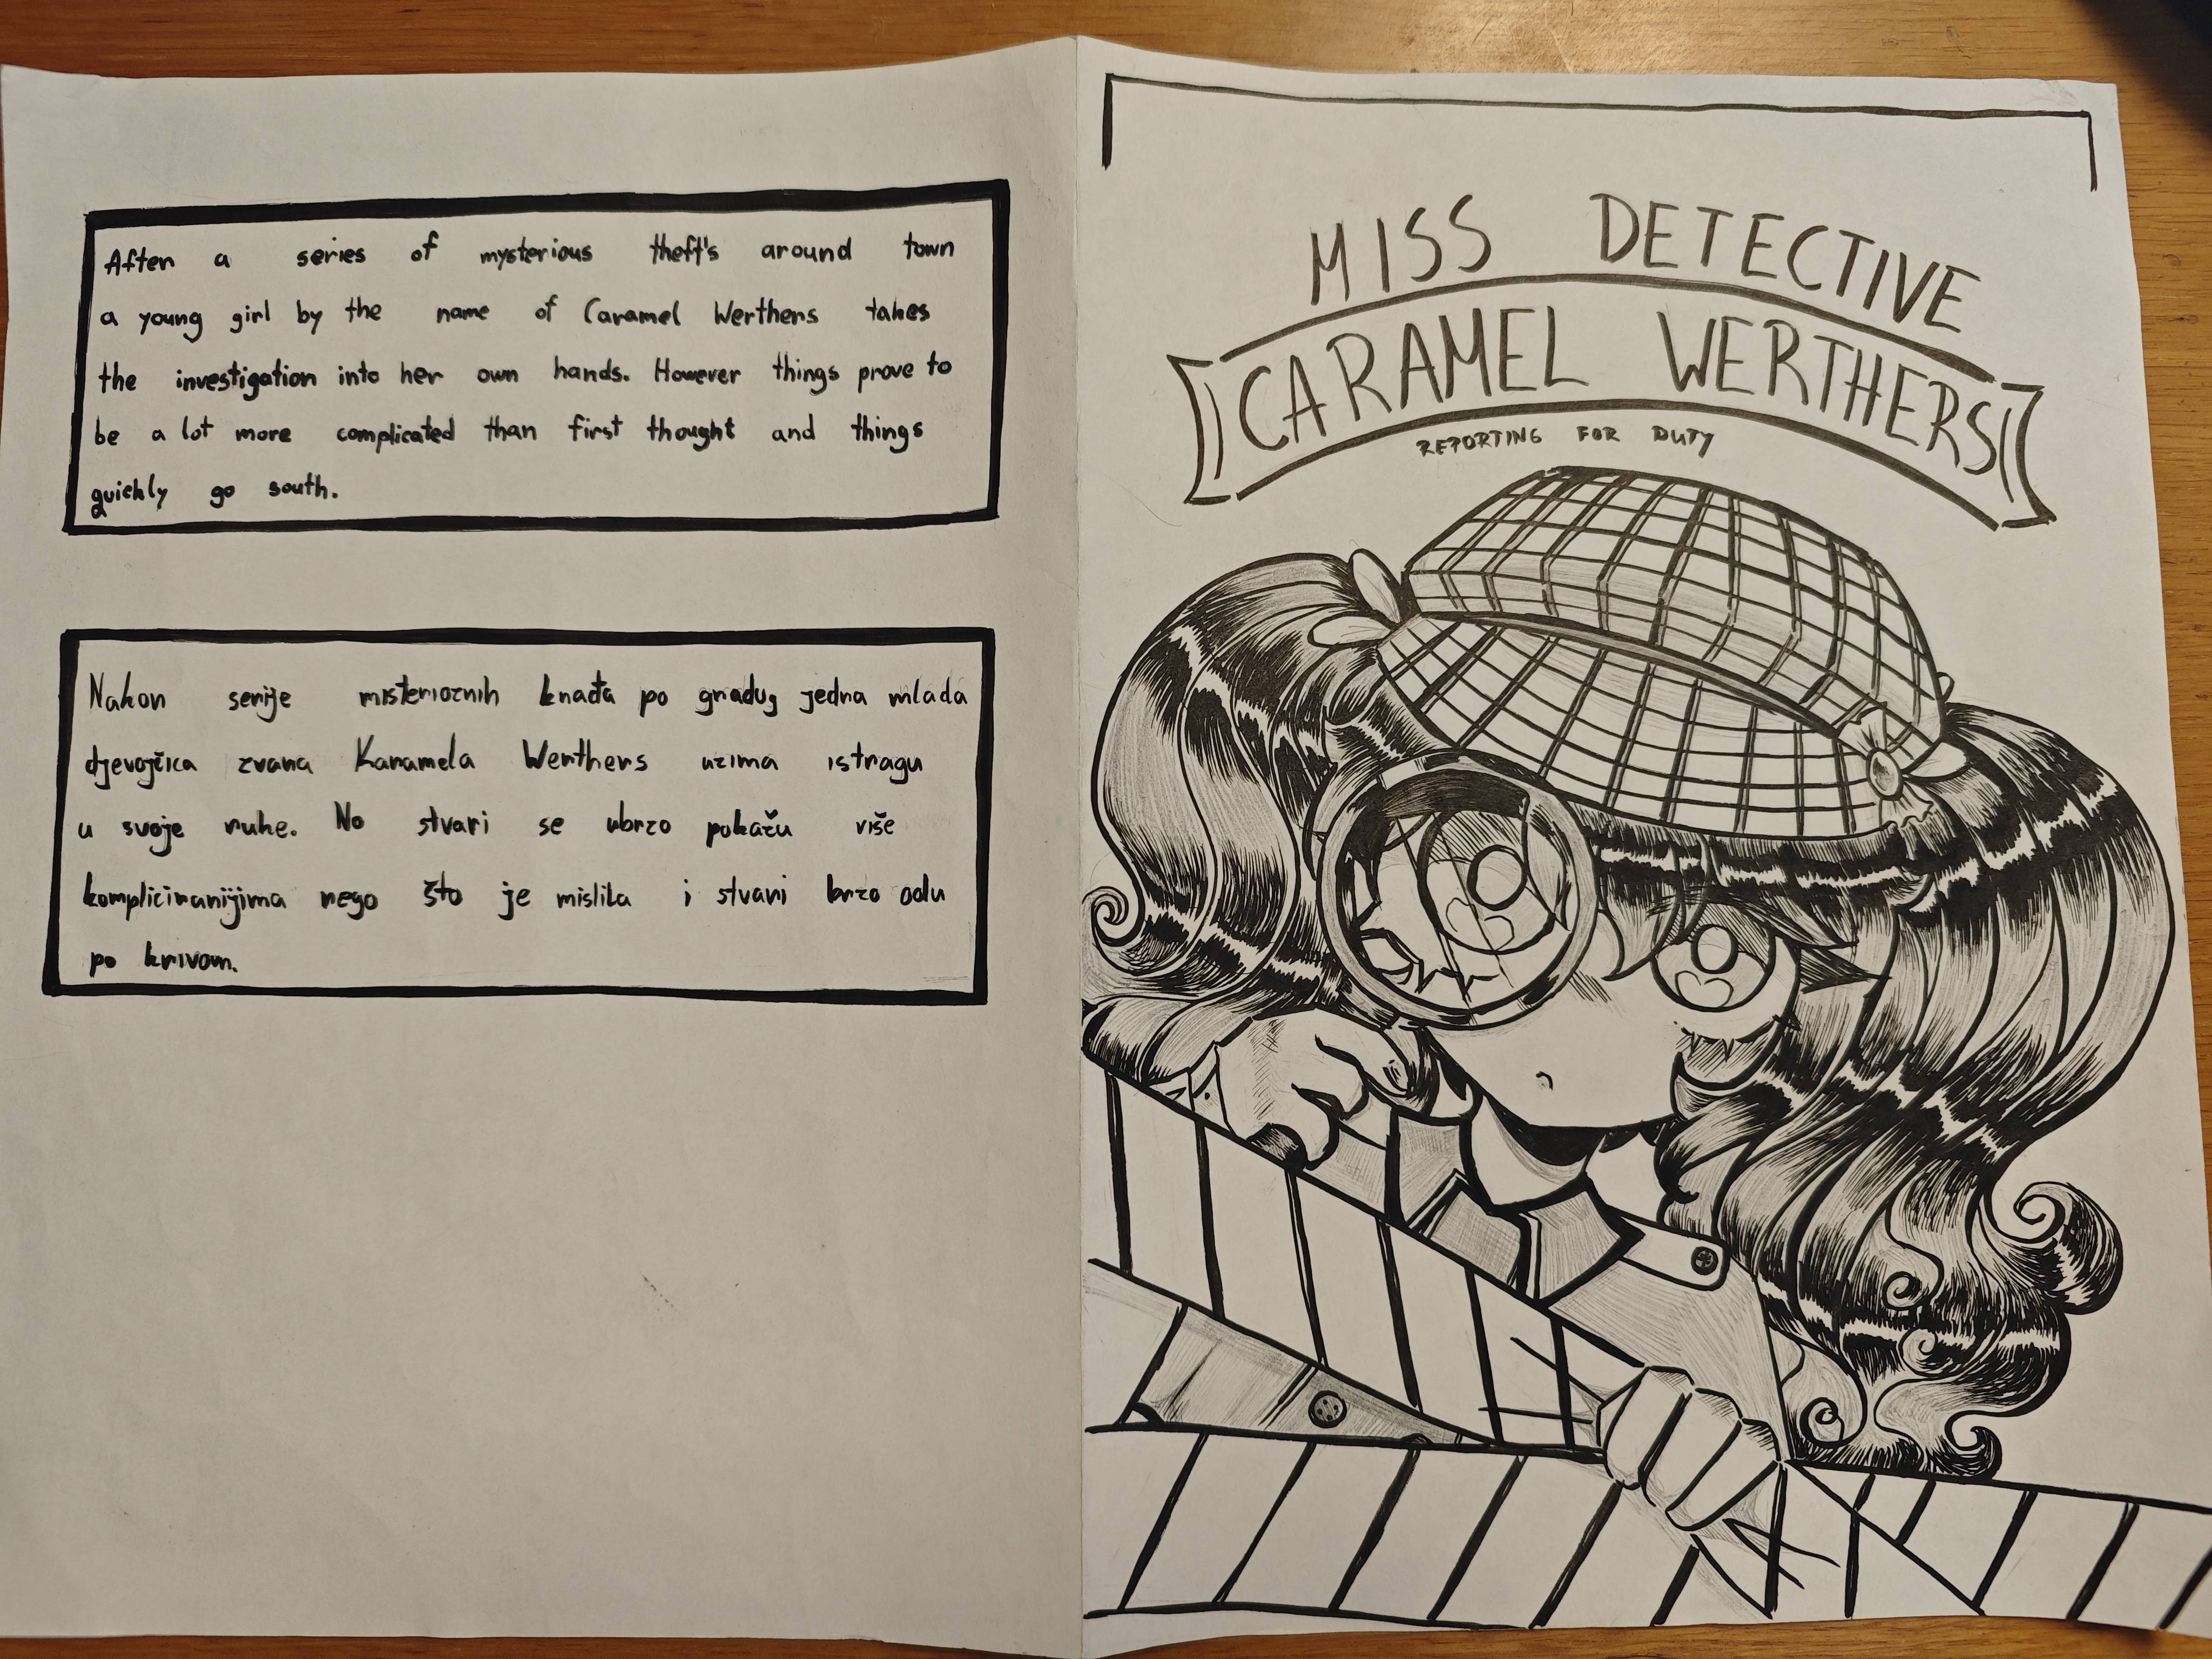 After a series of mysterious theft's around town
a young girl by the name of Caramel Werthers takes
the investigation into her own hands. However things prove to
be a lot more complicated than first thought and things
quickly go south.
Nakon serije misterioznih krađa po gradu, jedna mlada
djevojčica zvana Karamela Werthers uzima istragu
u svoje ruke. No stvari se ubrzo pokažu više
kompliciranijima nego što je mislila i stvari brzo odu
po krivom.
MISS DETECTIVE
CARAMEL WERTHERS
REPORTING FOR DUTY